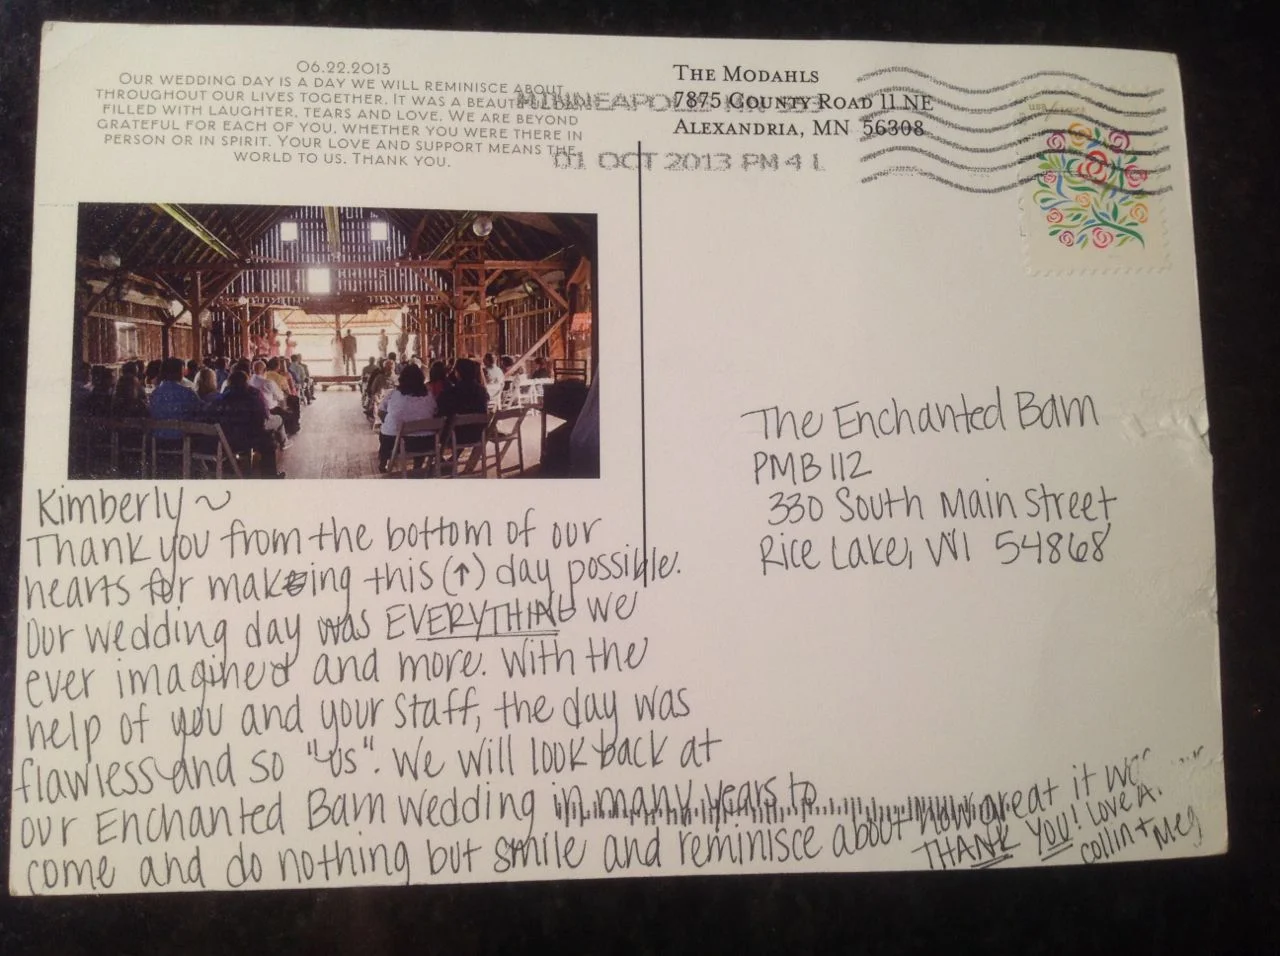 06.22.2013
Our wedding day is a day we will reminisce about
throughout our lives together. It was a beautiful day
filled with laughter, tears and love. We are beyond
grateful for each of you, whether you were there in
person or in spirit. Your love and support means the
world to us. Thank you.
The Modahls
7875 County Road 11 NE
Alexandria, MN 56308
MINNEAPOLIS MN 553
01 OCT 2013 PM 4 L
USA forever
The Enchanted Barn
PMB 112
330 South Main Street
Rice Lake, WI 54868
Kimberly ~
Thank you from the bottom of our
hearts for making this (↑) day possible.
Our wedding day was EVERYTHING we
ever imagined and more. With the
help of you and your staff, the day was
flawless and so "us". We will look back at
our Enchanted Barn wedding in many years to
come and do nothing but smile and reminisce about how great it was
THANK YOU! Love
Collin + Meg